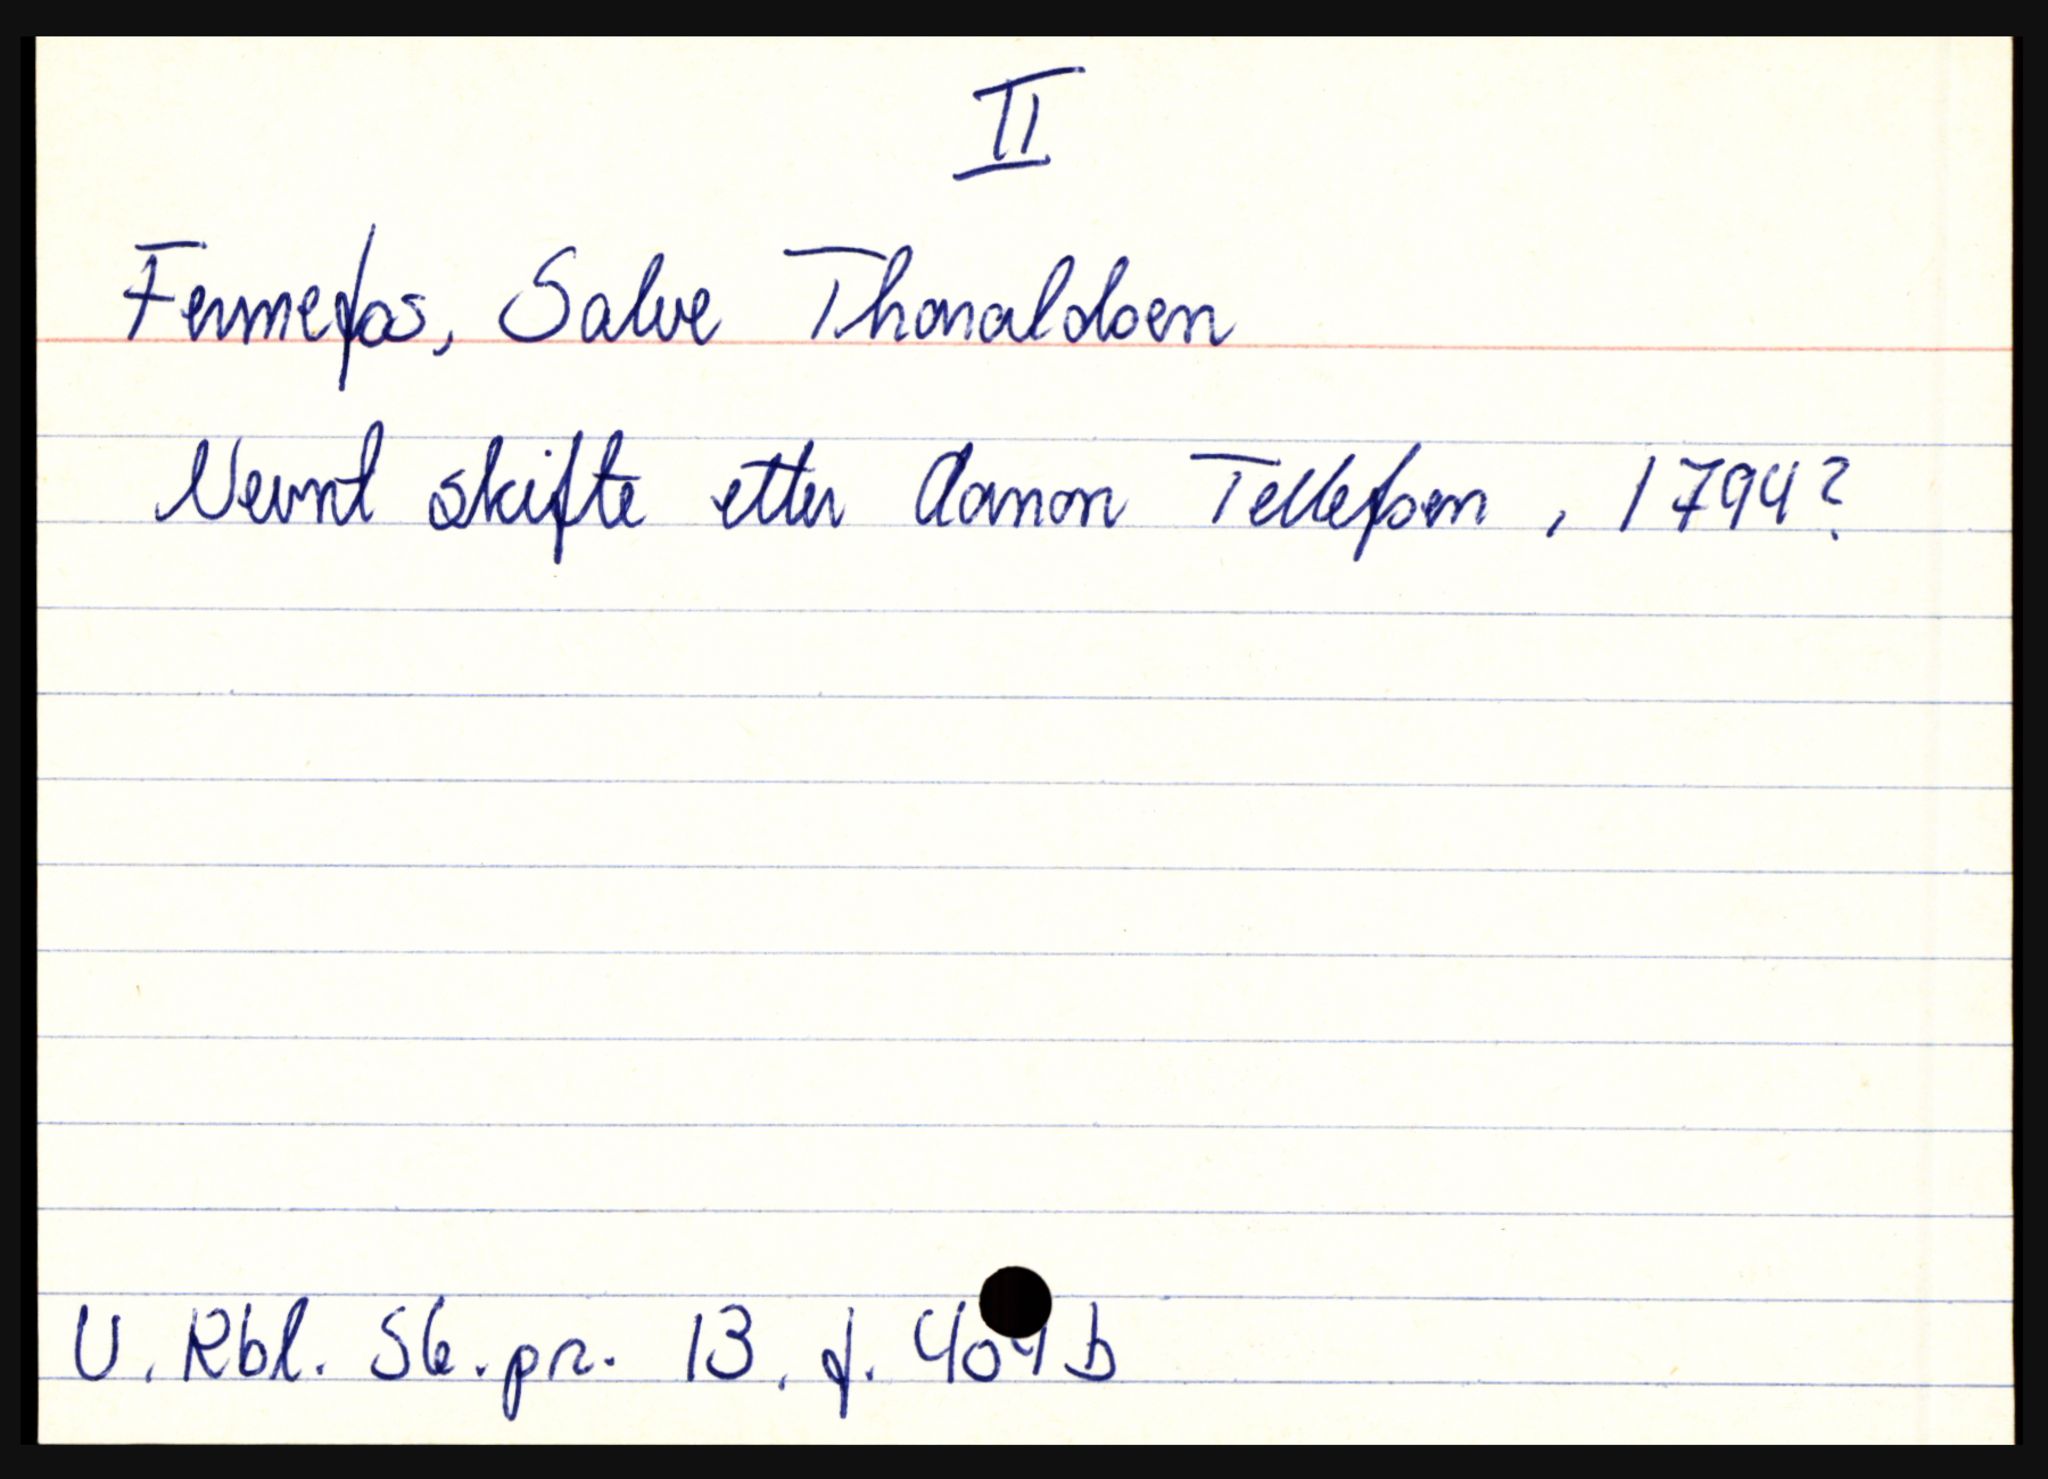 II
Fennefos, Salve Thoraldsen
Nevnt skifte etter Aanon Tellefsen, 1794?
U. Rbl. Sk.pr. 13, f. 404b